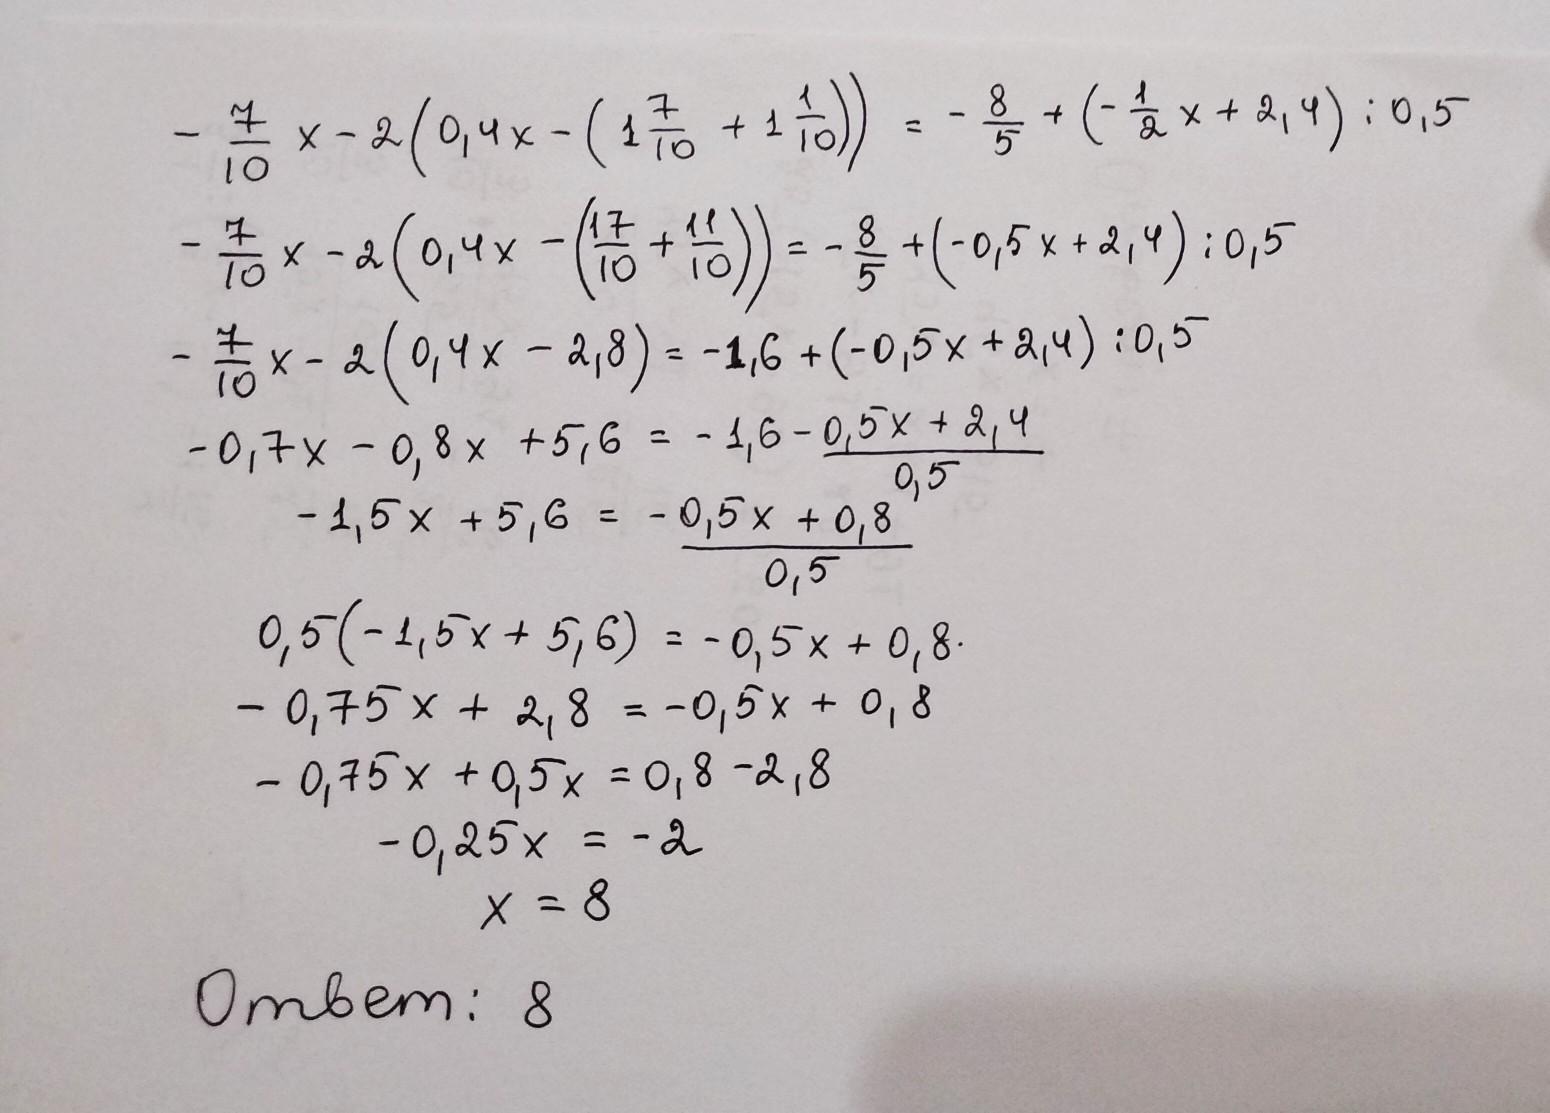 - 7/10 x - 2(0,4x - (1 7/10 + 1 1/10)) = - 8/5 + (- 1/2 x + 2,4) : 0,5
- 7/10 x - 2(0,4x - (17/10 + 11/10)) = - 8/5 + (-0,5x + 2,4) : 0,5
- 7/10 x - 2(0,4x - 2,8) = -1,6 + (-0,5x + 2,4) : 0,5
-0,7x - 0,8x + 5,6 = - 1,6 - (0,5x + 2,4)/0,5
-1,5x + 5,6 = - (0,5x + 0,8)/0,5
0,5(-1,5x + 5,6) = -0,5x + 0,8.
- 0,75x + 2,8 = -0,5x + 0,8
- 0,75x + 0,5x = 0,8 - 2,8
-0,25x = -2
x = 8
Ответ: 8